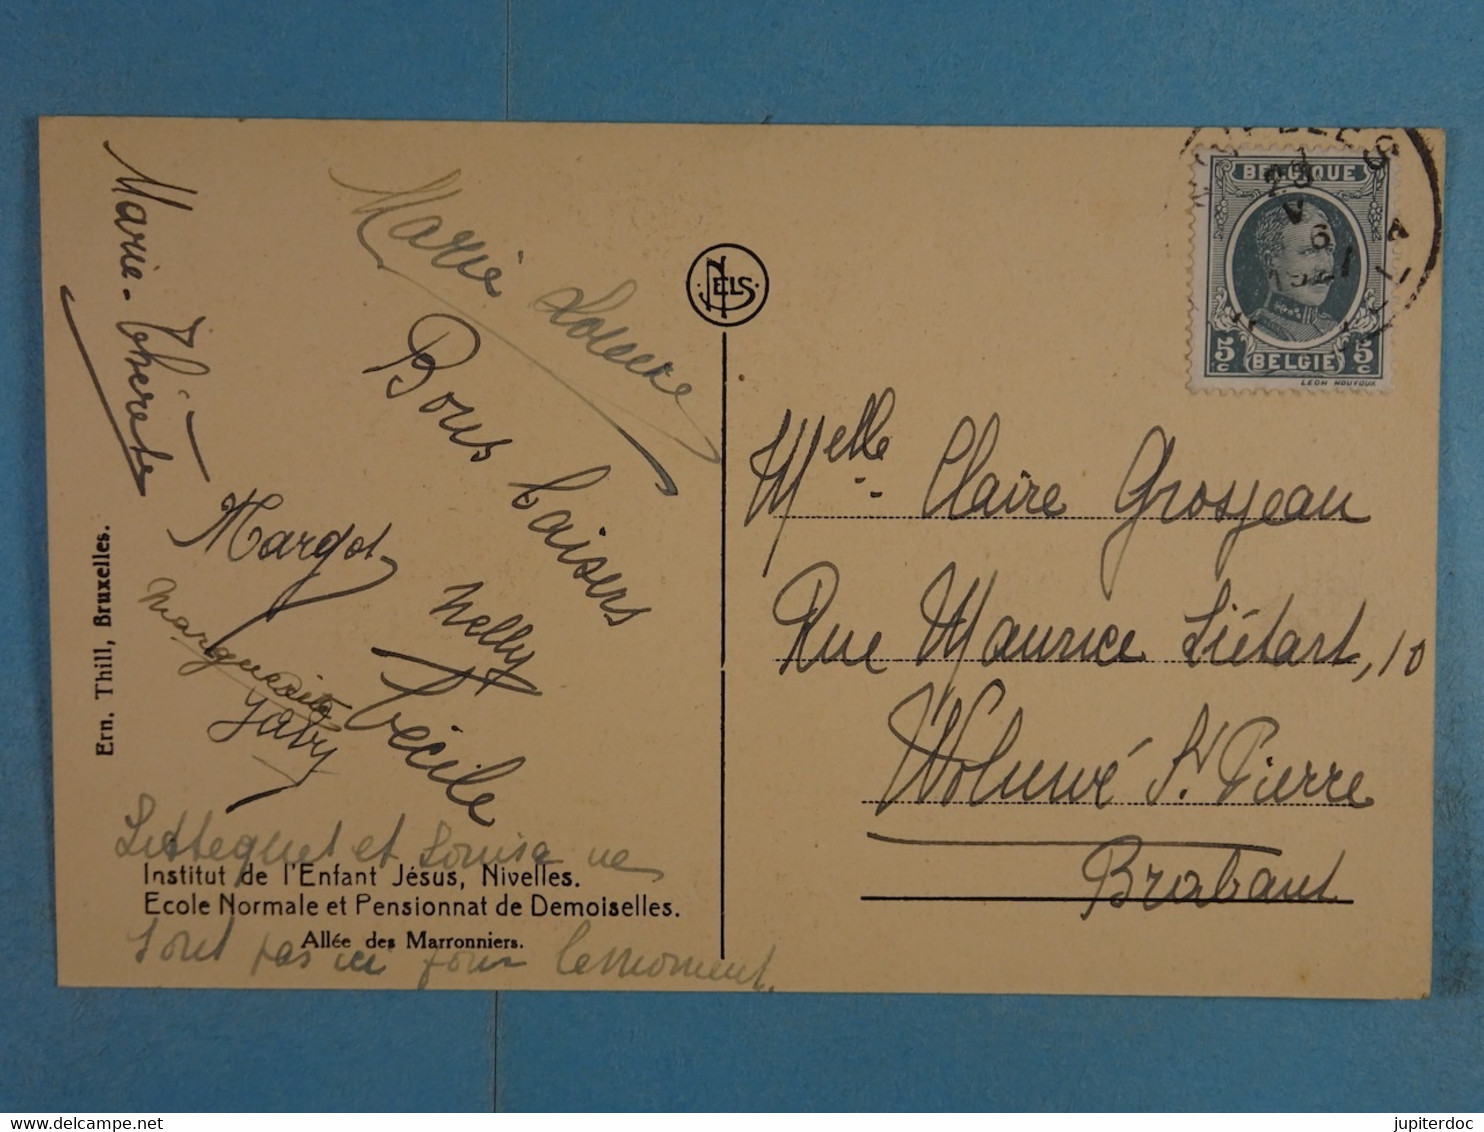 Marie-Thérèse
Marie Louise
Bons baisers
Margot
Nelly
Marguerite
Gaby
Cécile
et Louisa ne
sont pas ici pour le moment.
Institut de l'Enfant Jésus, Nivelles.
Ecole Normale et Pensionnat de Demoiselles.
Allée des Marronniers.
Ern. Thill, Bruxelles.
NELS
BELGIQUE
5c BELGIE 5c
LEON HOUYOUX
Melle Claire Grosjean
Rue Maurice Liétart, 10
Woluwé St Pierre
Brabant
jupiterdoc
www.delcampe.net